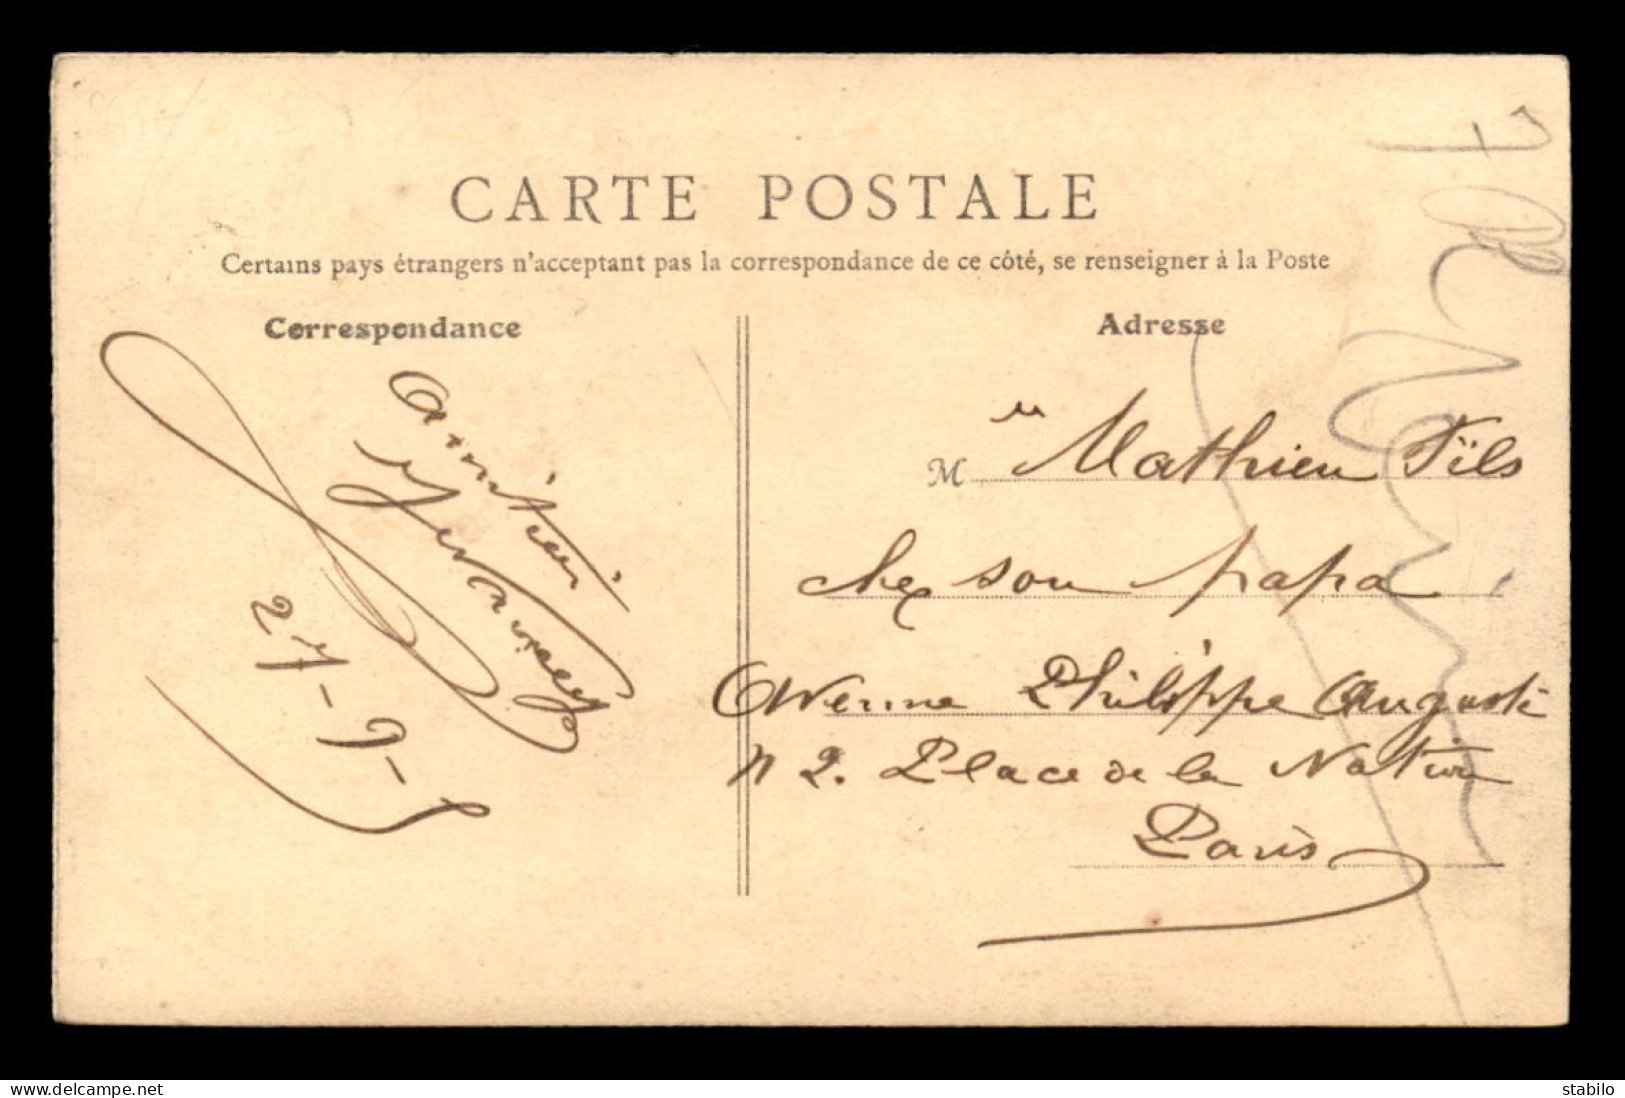 CARTE POSTALE
Certains pays étrangers n'acceptent pas la correspondance de ce côté, se renseigner à la Poste
Correspondance
27-9-5
Adresse
M Mathieu Fils
chez son papa
Avenue Philippe Auguste
n 2. Place de la Nation
Paris
https://www.delcampe.net
stabilo